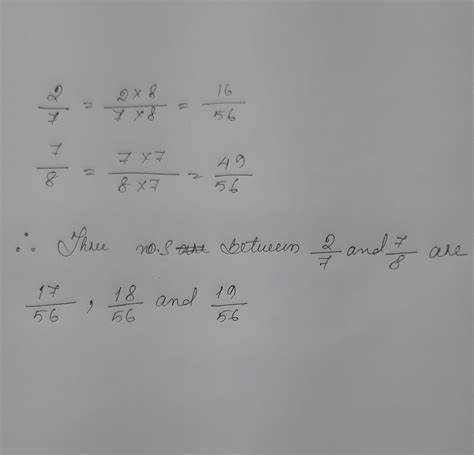 2/7 = 2×8/7×8 = 16/56
7/8 = 7×7/8×7 = 49/56
∴ Three nos between 2/7 and 7/8 are
17/56 , 18/56 and 19/56